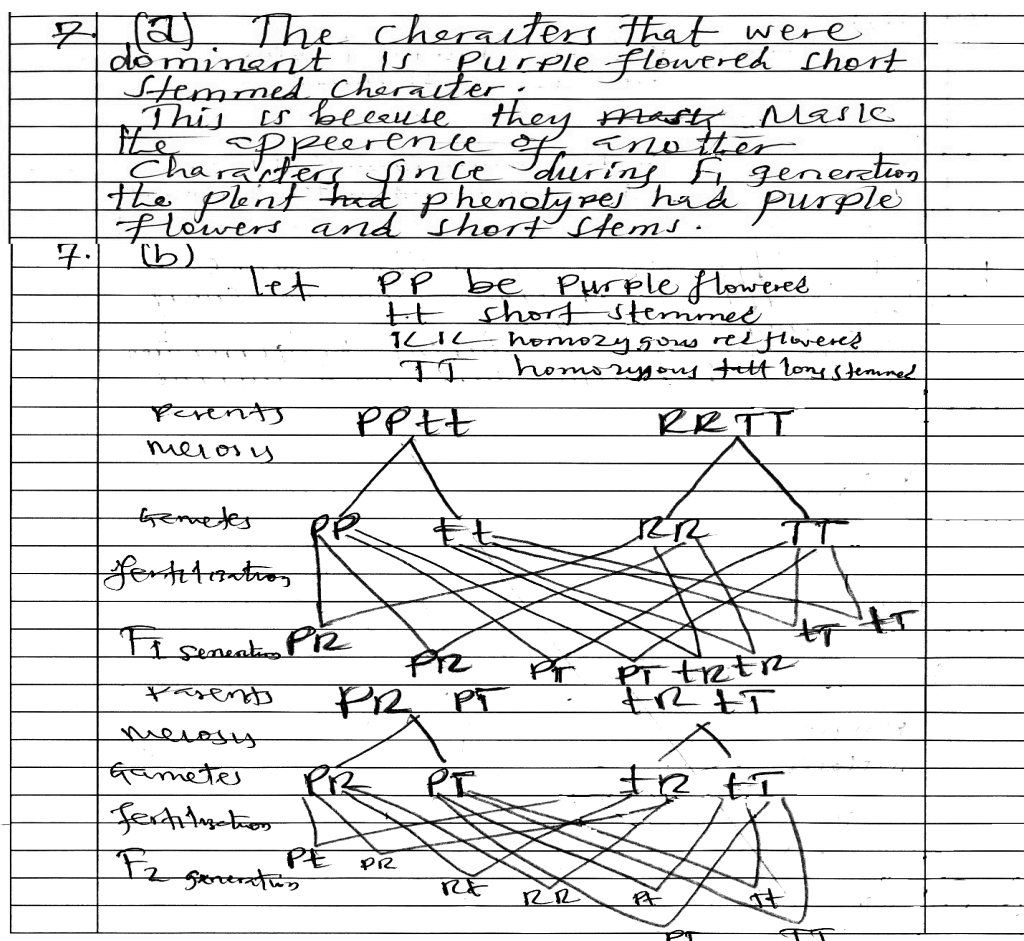 7. (a). The cheraiters that were
dominent is purple flowered short
stemmed cheraiter.
This is beceuse they mask Mask
the appeerence of another
Characters since during F1 generation
the plent had phenotypes had purple
flowers and short stems.
7. (b)
let PP be purple flowered
tt short stemmed
RR homozygous red flowered
TT homozygous tall long stemmed
parents PPtt RRTT
meiosis
Gametes PP tt RR TT
fertilization
tT tT
F1 generation PR
PR PT PT tR tR
parents PR PT tR tT
meiosis
Gametes PR PT tR tT
fertilization
F2 generation Pt PR
Rt RR
PT TT